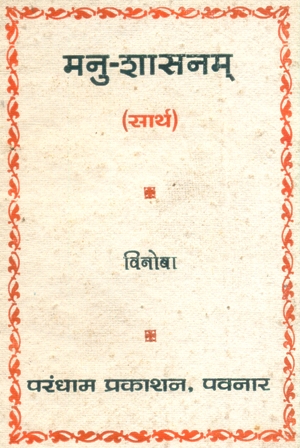 मनु-शासनम्
(सार्थ)
विनोबा
परंधाम प्रकाशन, पवनार